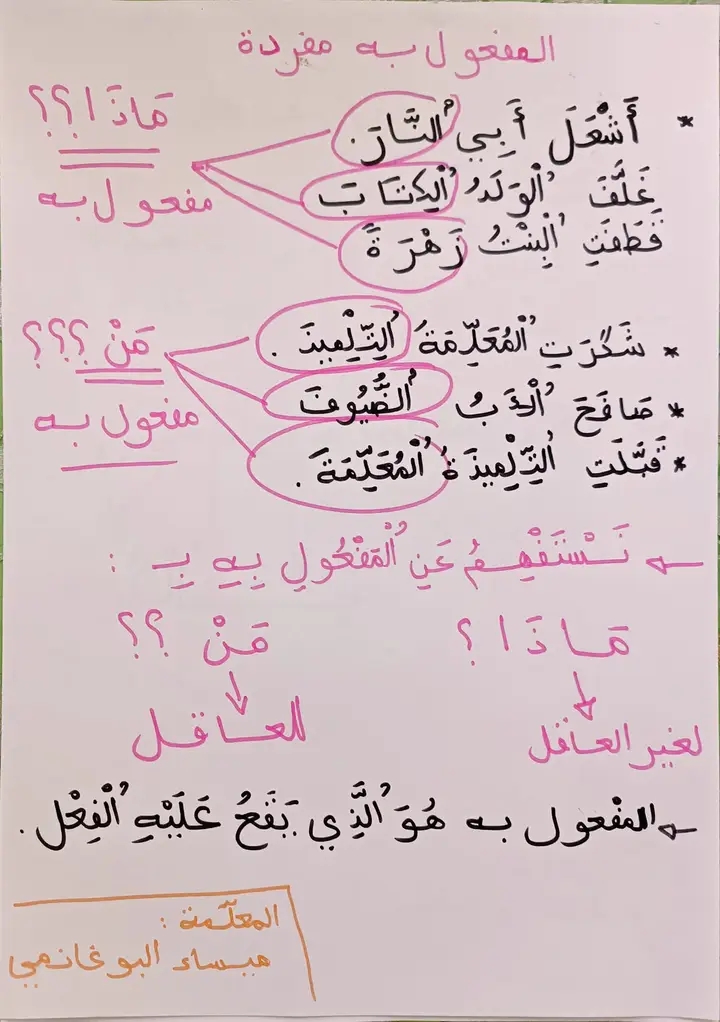 المفعول به مفردة
* أَشْعَلَ أَبِي النَّارَ.
مَاذَا؟؟
غَلَّفَ الْوَلَدُ الْكِتَابَ
مفعول به
قَطَفَتِ الْبِنْتُ زَهْرَةً
* شَكَرَتِ الْمُعَلِّمَةُ التِّلْمِيذَ.
مَنْ؟؟؟
* صَافَحَ الْأَبُ الضُّيُوفَ
مفعول به
* قَبَّلَتِ التِّلْمِيذَةُ الْمُعَلِّمَةَ.
← نَسْتَفْهِمُ عَنِ الْمَفْعُولِ بِهِ بِ :
مَاذَا؟ مَنْ؟؟
لغير العاقل للعاقل
← المفْعول به هُوَ الَّذِي يَقَعُ عَلَيْهِ الْفِعْل.
المعلّمة :
ميساء البوغانمي